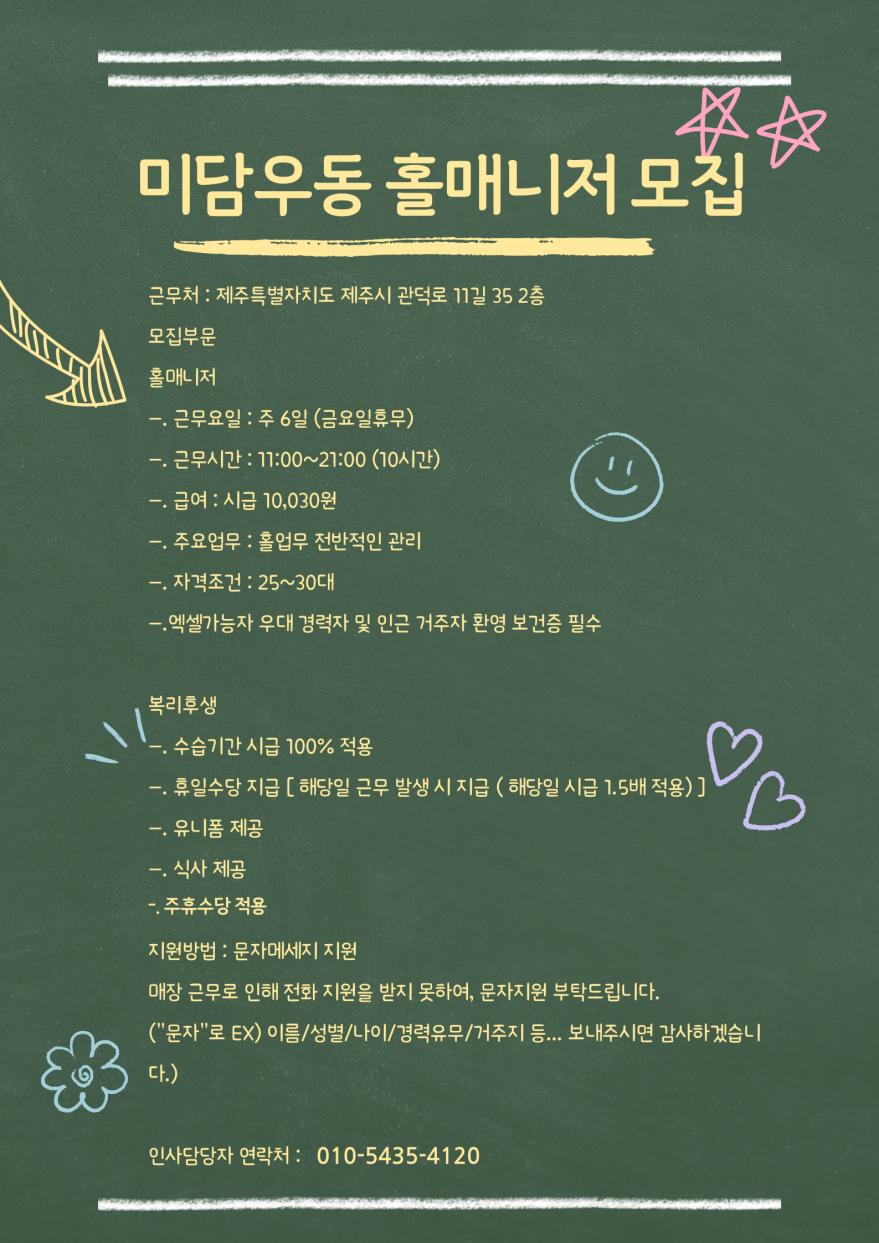 미담우동 홀매니저 모집
근무처 : 제주특별자치도 제주시 관덕로 11길 35 2층
모집부문
홀매니저
-. 근무요일 : 주 6일 (금요일휴무)
-. 근무시간 : 11:00~21:00 (10시간)
-. 급여 : 시급 10,030원
-. 주요업무 : 홀업무 전반적인 관리
-. 자격조건 : 25~30대
-.엑셀가능자 우대 경력자 및 인근 거주자 환영 보건증 필수
복리후생
-. 수습기간 시급 100% 적용
-. 휴일수당 지급 [ 해당일 근무 발생 시 지급 ( 해당일 시급 1.5배 적용) ]
-. 유니폼 제공
-. 식사 제공
-. 주휴수당 적용
지원방법 : 문자메세지 지원
매장 근무로 인해 전화 지원을 받지 못하여, 문자지원 부탁드립니다.
("문자"로 EX) 이름/성별/나이/경력유무/거주지 등... 보내주시면 감사하겠습니
다.)
인사담당자 연락처 : 010-5435-4120